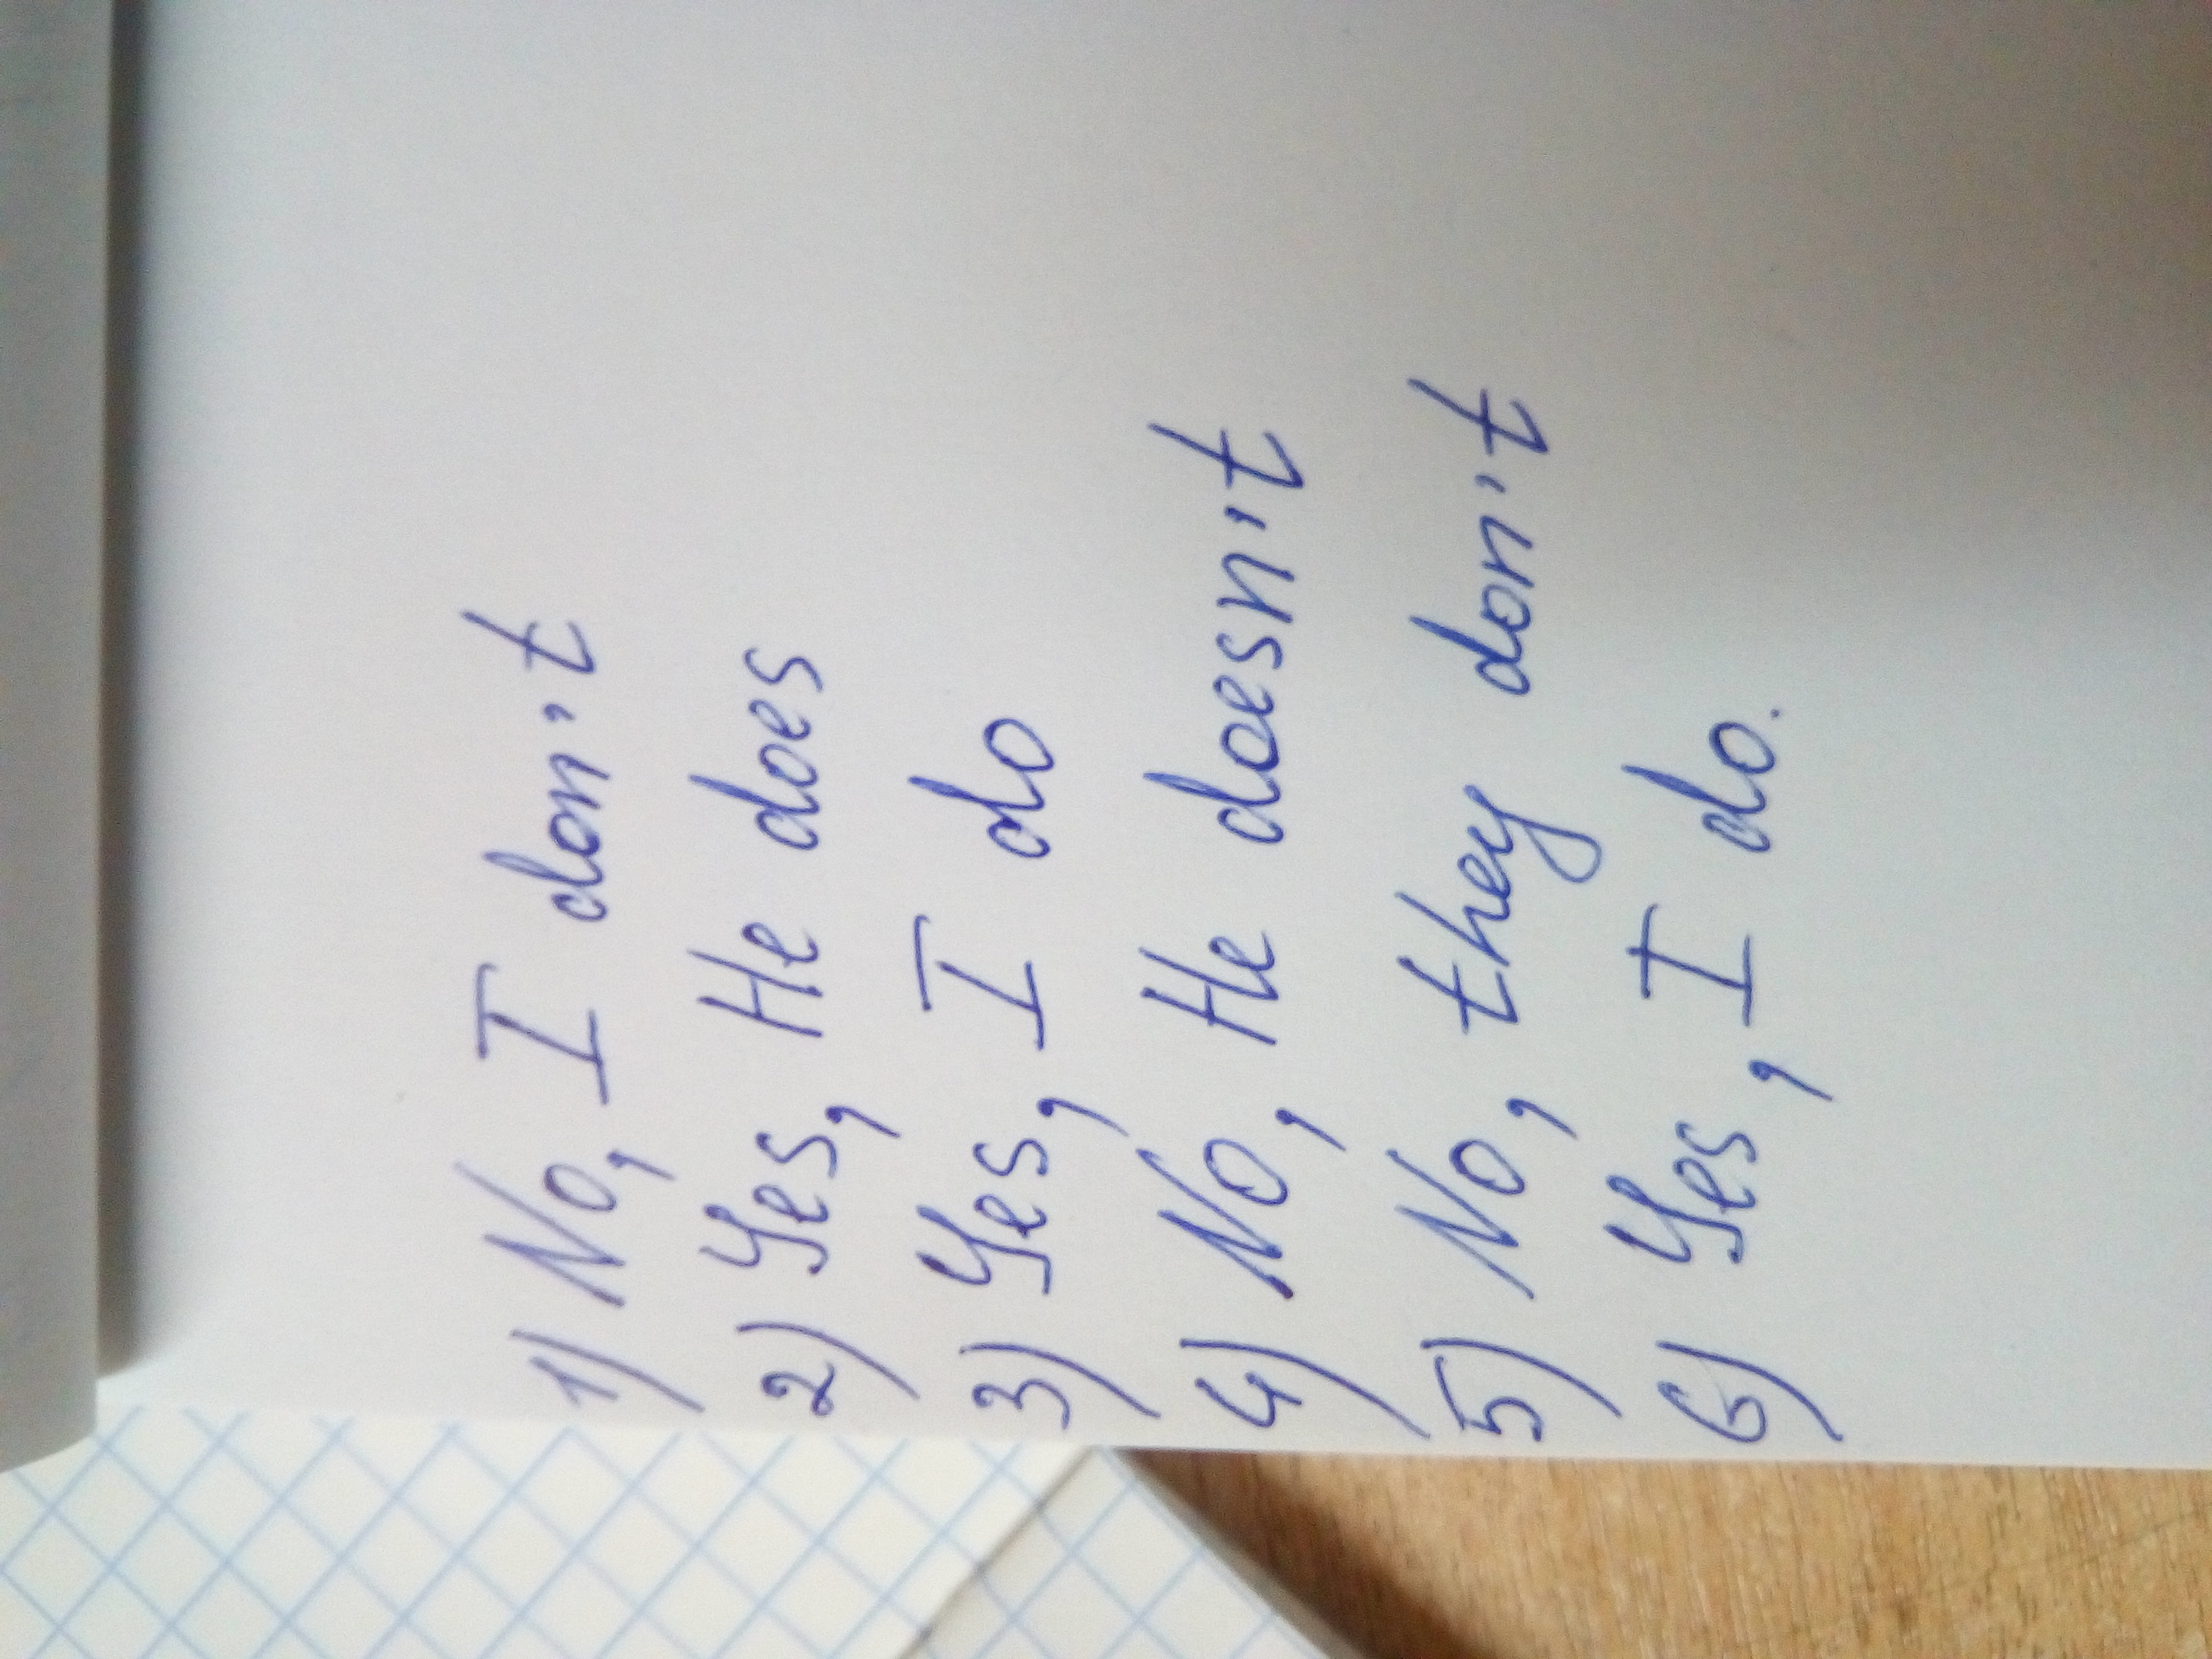 1) No, I don't
2) Yes, He does
3) Yes, I do
4) No, He doesn't
5) No, they don't
6) Yes, I do.